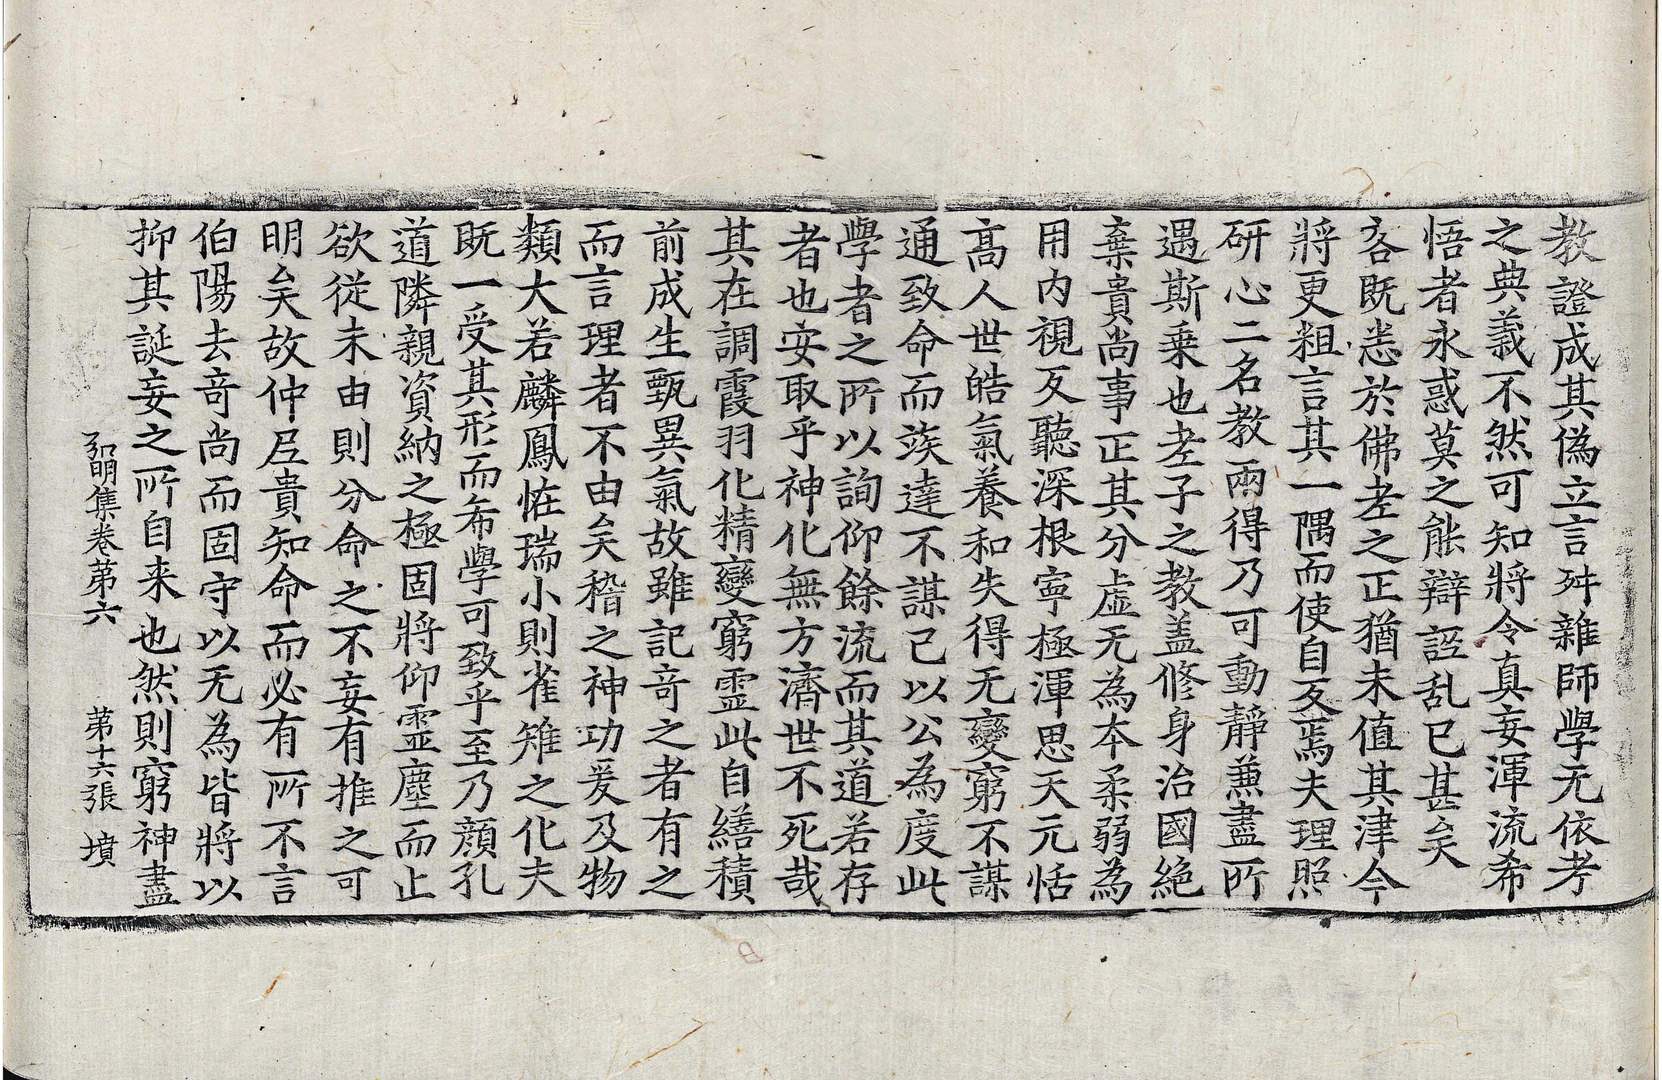 教證成其偽立言舛雜師學无依考
之典義不然可知將令真妄渾流希
悟者永惑莫之能辯誣乱已甚矣
客既恙於佛老之正猶未值其津今
將更粗言其一隅而使自反焉夫理照
研心二名教兩得乃可動靜兼盡所
遇斯乗也老子之教盖修身治國絶
棄貴尚事正其分虛无為本柔弱為
用内視反聽深根寧極渾思天元恬
高人世皓氣養和失得无變窮不謀
通致命而竢達不謀已以公為度此
學者之所以詢仰餘流而其道若存
者也安取乎神化無方濟世不死哉
其在調霞羽化精變窮霊此自繕積
前成生甄異氣故雖記竒之者有之
而言理者不由矣稽之神功爰及物
類大若麟鳳恠瑞小則雀雉之化夫
既一受其形而希學可致乎至乃顔孔
道隣親資納之極固將仰霊塵而止
欲從未由則分命之不妄有推之可
明矣故仲尼貴知命而必有所不言
伯陽去竒尚而固守以无為皆將以
抑其誕妄之所自来也然則窮神盡
弘明集卷第六 第十六張 墳